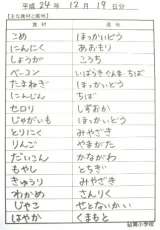 平成 24年 12月 19日分
【主な食材と産地】
食材 産地
こめ ほっかいどう
にんにく あおもり
しょうが こうち
ベーコン いばらき ぐんま ちば
たまねぎ ほっかいどう
にんじん ちば
セロリ しずおか
じゃがいも ほっかいどう
とりにく みやざき
りんご やまがた
だいこん かながわ
もやし とちぎ
きゅうり みやざき
わかめ さんりく
じゃこ せとないかい
はやか くまもと
小学校